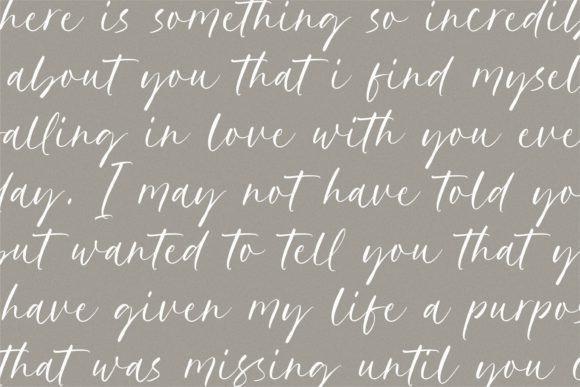 here is something so incredib
about you that i find mysel
alling in love with you eve
day. I may not have told yo
but wanted to tell you that y
have given my life a purpos
that was missing until you c